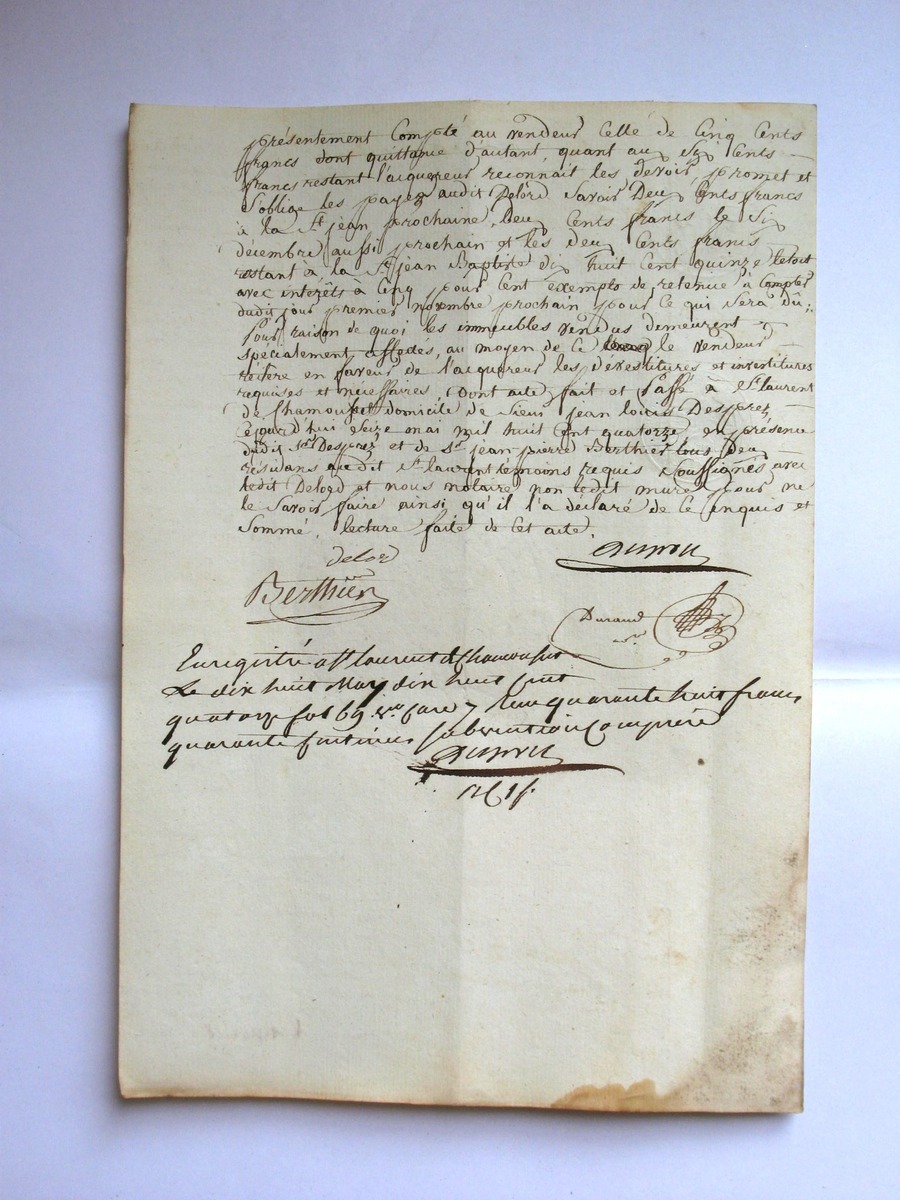 présentement Compté au vendeur Celle de Cinq Cents
francs dont quittance d'autant, quant aux Six Cents
francs restant l'acquereur reconnait les devoir, promet et
s'oblige les payer audit Delord Savoir Deux Cents francs
à la St. jean prochaine, Deux Cents francs le Six
décembre aussi prochain et les deux Cents francs
restant à la St. jean Baptiste dix huit Cent quinze le tout
avec intérêts à Cinq pour Cent exempts de retenue à Compter
dudit jour premier novembre prochain pour Ce qui Sera Dû;
Pour raison de quoi les immeubles vendus demeurent
specialement affectés, au moyen de Ce le vendeur
réfère en faveur de l'acquereur les Dévestitures et investitures
requises et nécessaires, Dont acte, fait et Passé à St. laurent
de Chamousset domicile de Sieur jean louis Desprez
Cejourd'hui Seize mai mil huit Cent quatorze en présence
dudit Sr. Desprez et de Sr. jean pierre Berthier tous deux
résidans audit St. laurent témoins requis Soussignés avec
ledit Delord et nous notaire non ledit mure pour ne
le Savoir faire ainsi qu'il l'a déclaré de Ce enquis et
Sommé, lecture faite de Cet acte.
delord
Berthier
Durand
Enregistré à St laurent de Chamousset
Le dix huit May dix huit Cent
quatorze fol 69 vo. Case 7 Reçu quarante huit francs
quarante Centimes Subvention Comprise